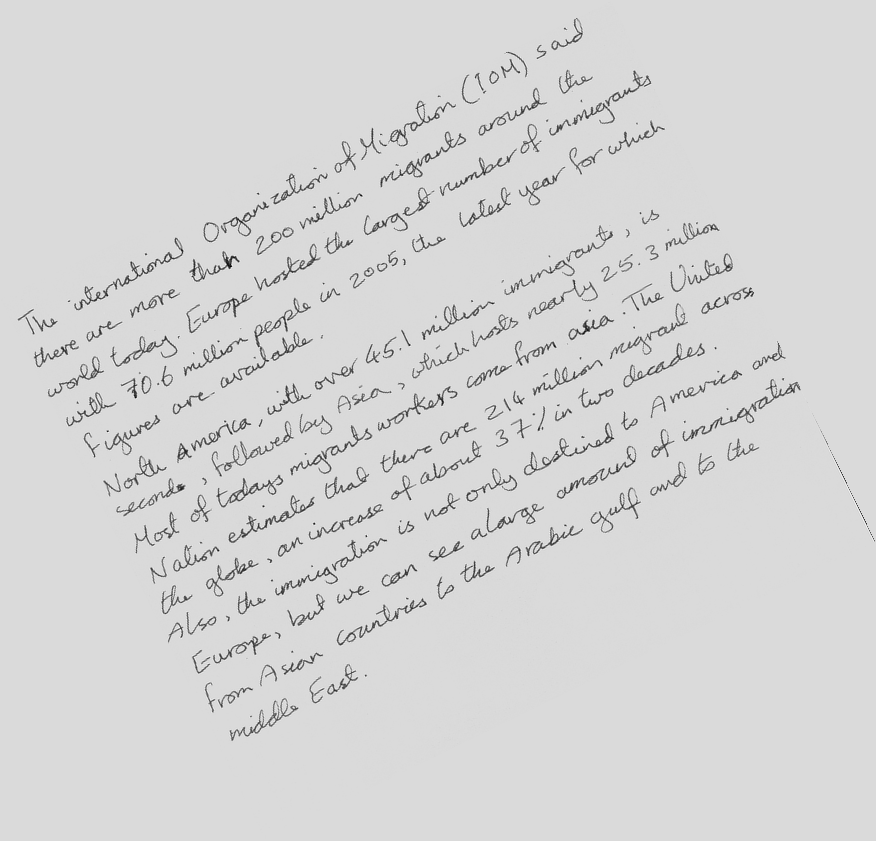 The international Organization of Migration (IOM) said
there are more than 200 million migrants around the
world today. Europe hosted the largest number of immigrants
with 70.6 million people in 2005, the latest year for which
figures are available.
North America, with over 45.1 million immigrants, is
seconds, followed by Asia, which hosts nearly 25.3 million
Most of todays migrants workers come from asia. The United
Nation estimates that there are 214 million migrant across
the globe, an increase of about 37% in two decades.
Also, the immigration is not only destined to America and
Europe, but we can see a large amound of immigration
from Asian countries to the Arabic gulf and to the
middle East.